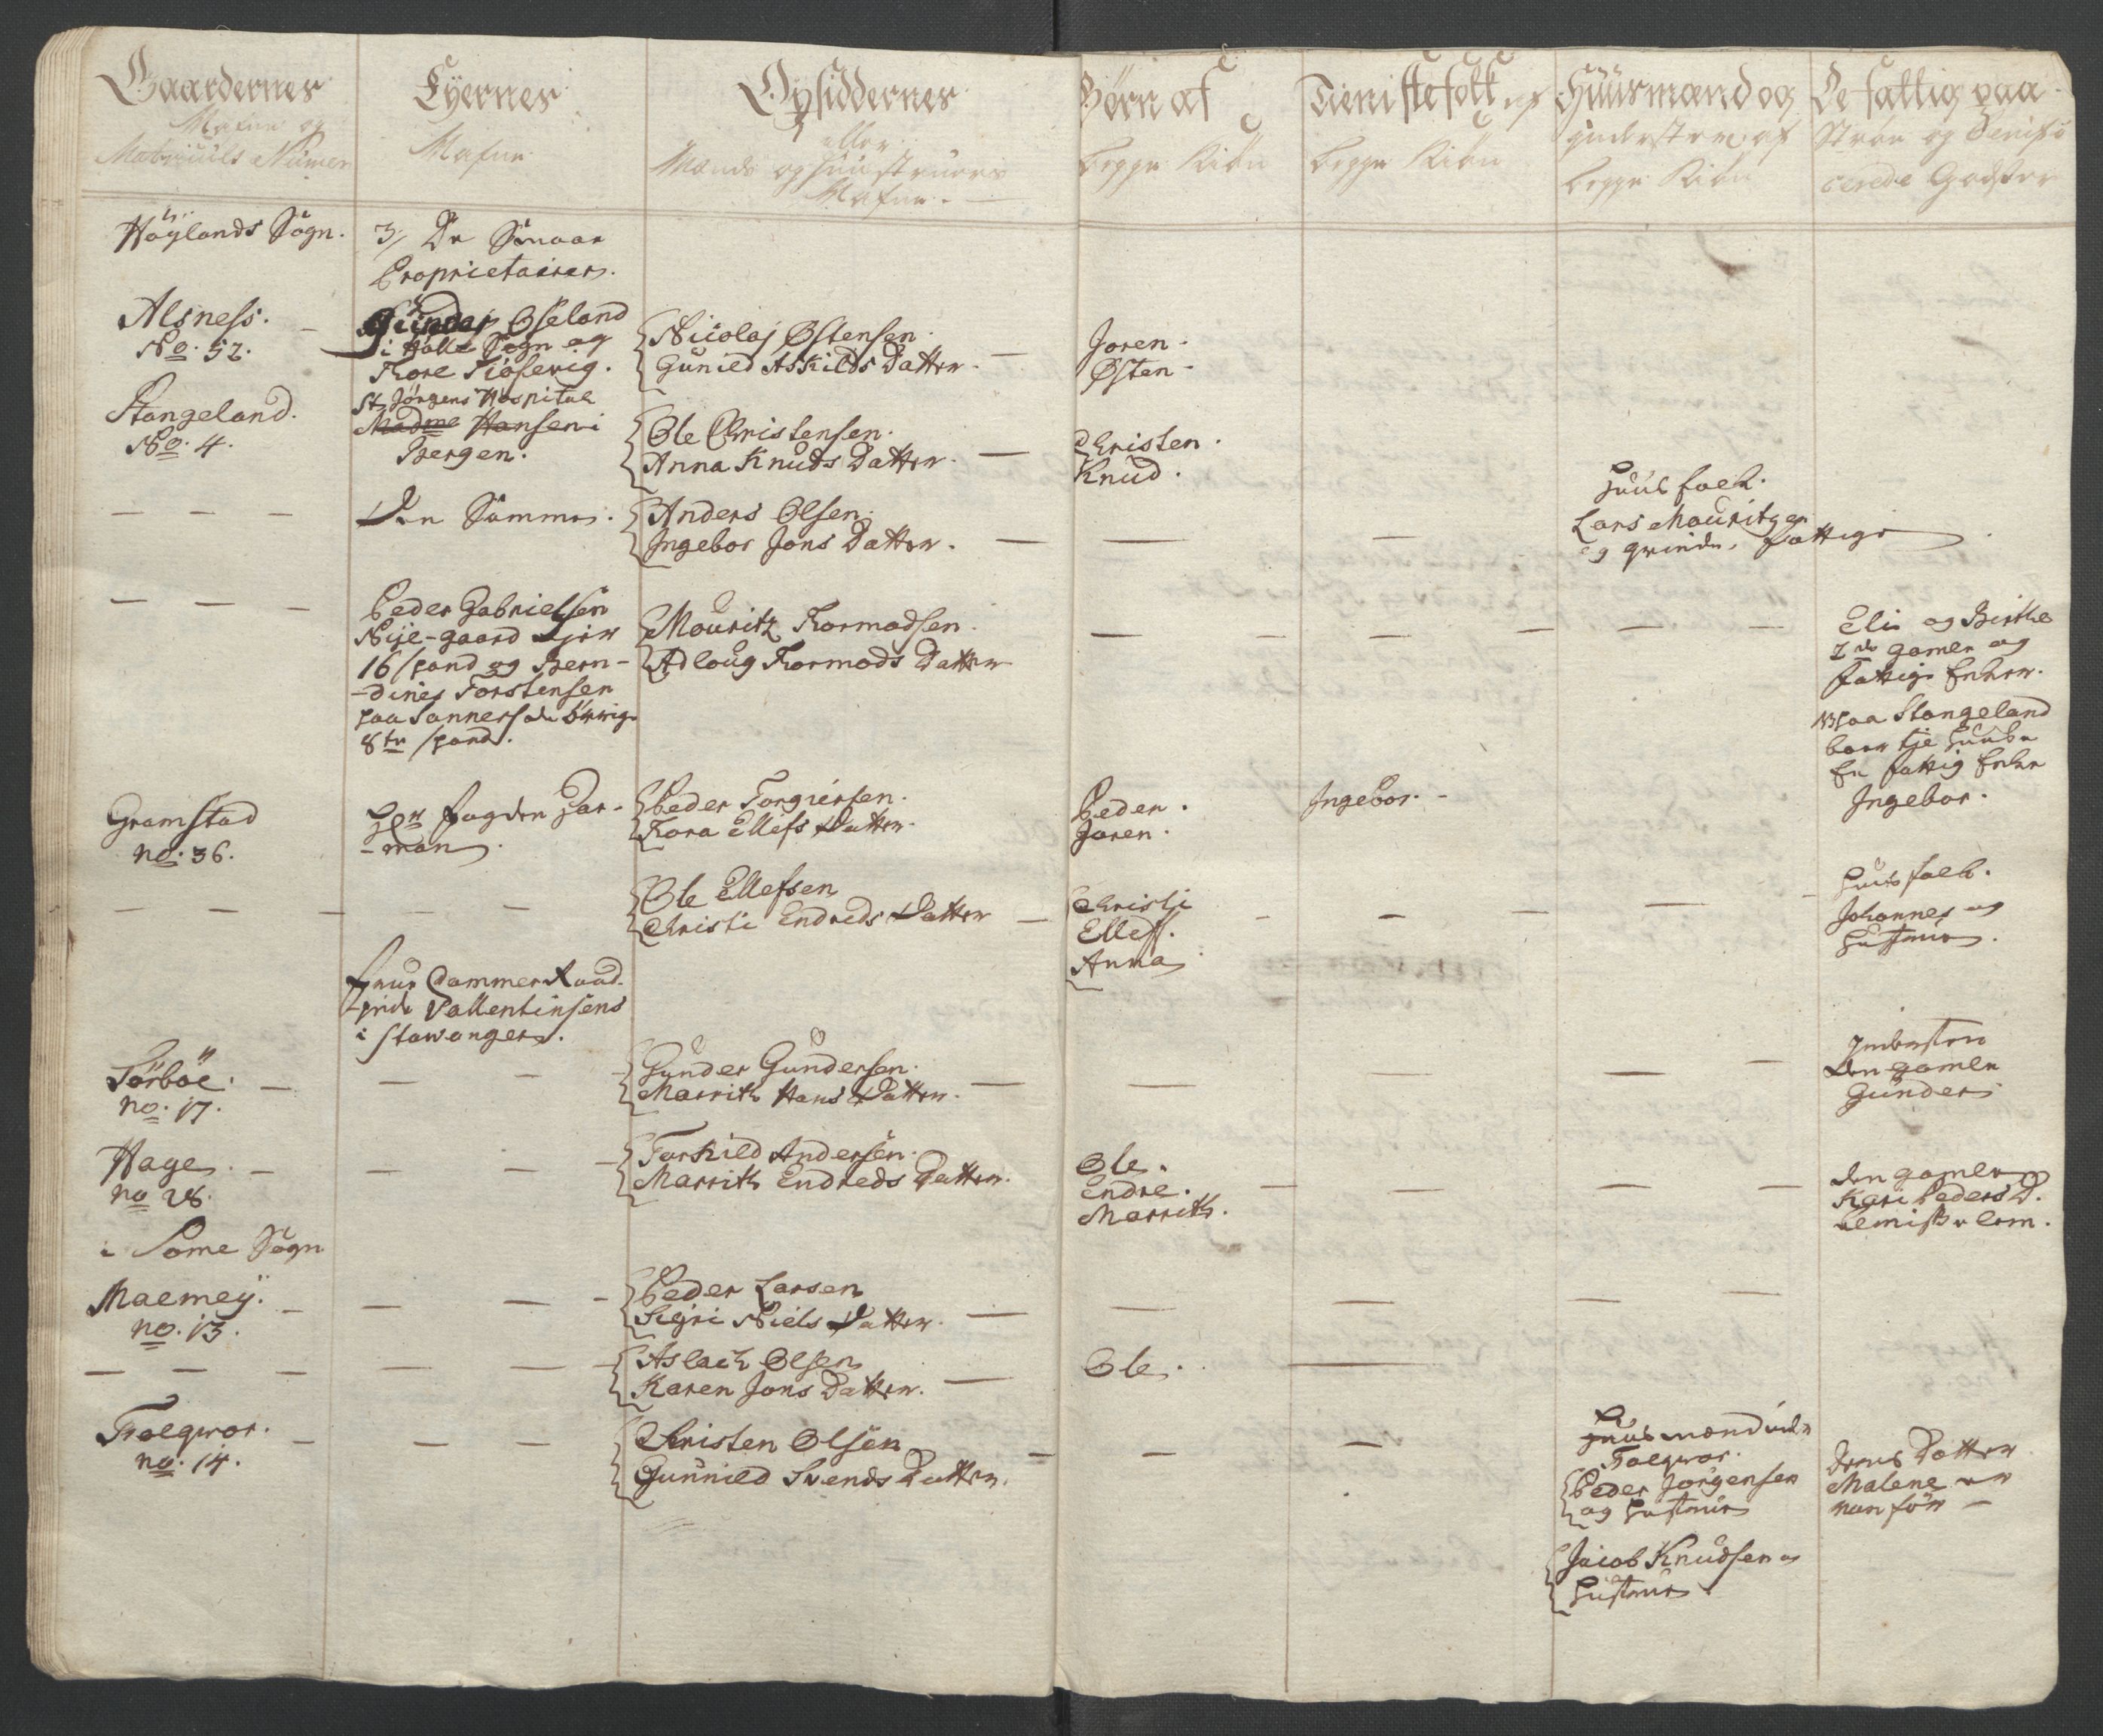 Gaardernes
Nafne og
Matriculs Numer
Eyernes
Nafne
Opsiddernes
eller
Mands og Huustruers
Nafne.
Börn af
begge Kiön
Tieniste folk af
begge Kiön
Huusmænd og
Inderster af
begge Kiön
De fattig paa
Höylands Sogn.
3, De Smaae
Proprietairer.
Alsness.
No. 52.
Gunder Øseland
i Halle Sogn og
Tore Tiöserig.
Nicolaj Østensen.
Gunild Askilds Datter.
Joren.
Østen
Stangeland.
No. 4.
St. Jørgens Hospital
Madme Hansen i
Bergen.
Ole Christensen.
Anna Knuds Datter.
Christen.
Knud.
Den Samme.
Anders Olsen.
Ingebor Jons Datter.
Huus folk.
Lars Mouritzen
og qvinde, fattige
Peder Gabrielsen
Nye-gaard Ejer
16 spand og Bern-
-dines Torstensen
paa Sannes de övrige
8te spand.
Mouritz Tormodsen
Adloug Tormods Datter
Eli og Birthe
2de gamle og
fattige Enker.
NB paa Stangeland
En fattig Enke
Ingebor.
Gramstad
no. 36.
Hr. fogden Har-
-man.
Peder Torgiersen.
Tora Ellefs Datter.
Peder.
Joren.
Ingebor.
Ole Ellefsen
Christi Endreds Datter
Christi
Elleff.
Anna
Huusfolk.
Johannes og
Hustrue.
Frue CammerRaad-
inde Vallentinsens
i Stawanger.
Sörböe.
no. 17.
Gunder Gundersen.
Marrith Hans Datter.
Inderster
den gamle
Gunder
Hage.
no 28.
Torkild Andersen.
Marrith Endreds Datter.
Ole.
Endre.
Marrith.
den gamle
Kari Peders D.
almisse lem.
i Some Sogn
Maemey.
no. 13.
Peder Larsen
Sigri Niels Datter.
Aslach Olsen
Karen Jons Datter.
Ole.
Foelqvor.
no. 14.
Christen Olsen
Gunnild Svends Datter.
Huusmænd under
Foelqvor.
Peder Jørgensen
og Hustrue
deres Datter
Malene er
van för
Jacob Knudsen og
Hustrue